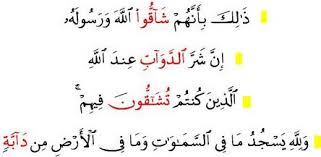 ذَٰلِكَ بِأَنَّهُمْ شَآقُّوا۟ ٱللَّهَ وَرَسُولَهُۥ
إِنَّ شَرَّ ٱلدَّوَآبِّ عِندَ ٱللَّهِ
ٱلَّذِينَ كُنتُمْ تُشَٰٓقُّونَ فِيهِمْ ۚ
وَلِلَّهِ يَسْجُدُ مَا فِى ٱلسَّمَٰوَٰتِ وَمَا فِى ٱلْأَرْضِ مِن دَآبَّةٍ